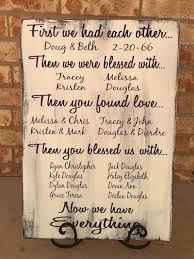 First we had each other...
Doug & Beth 2-20-66
Then we were blessed with...
Tracey Melissa
Kristen Douglas
Then you found love...
Melissa & Chris Tracey & John
Kristen & Mark Douglas & Dyrdre
Then you blessed us with...
Ryan Christopher Jack Douglas
Kyle Douglas Haley Elizabeth
Dylan Douglas Devan Ann
Grace Teresa Declan Douglas
Now we have
Everything